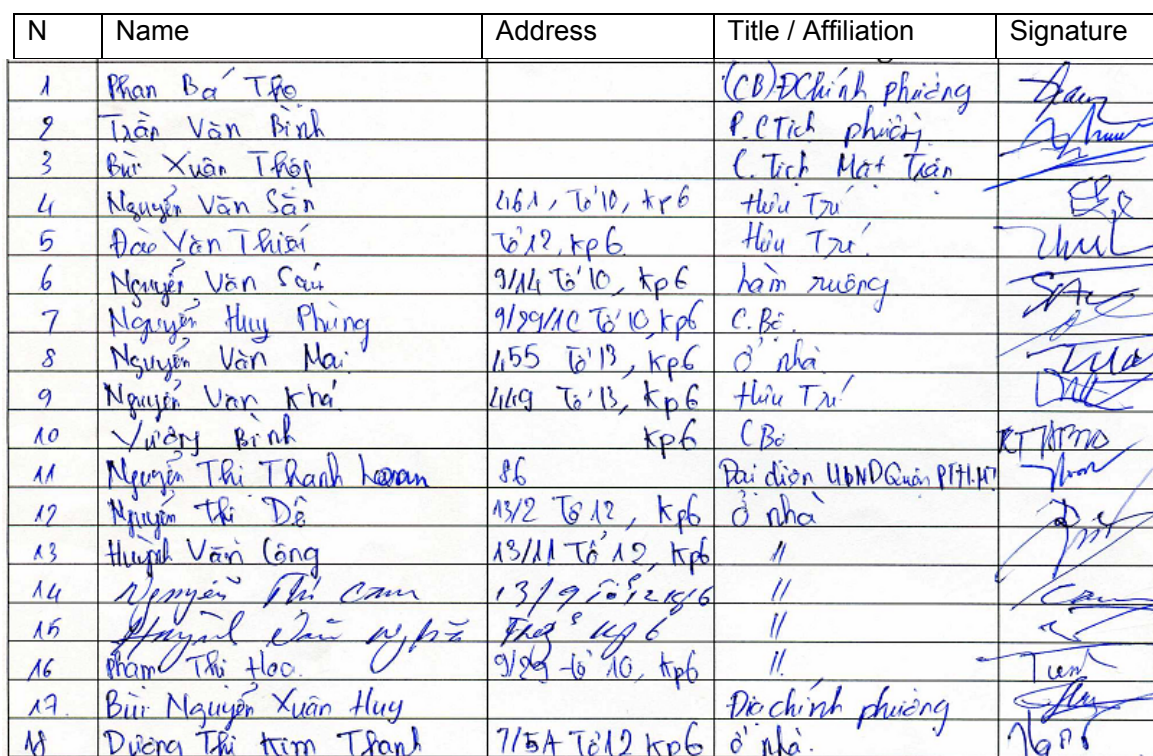 N Name Address Title / Affiliation Signature
1 Phan Bá Thọ (CB) ĐChính phường
2 Trần Văn Bình P.CTịch phường
3 Bùi Xuân Thép C.Tịch Mặt Trận
4 Nguyễn Văn Sẵn 461, Tổ 10, kp6 Hưu Trí
5 Đào Văn Tổ 12, kp6 Hưu Trí
6 Nguyễn Văn Sáu 9/14 Tổ 10, kp6 Làm ruộng
7 Nguyễn Huy Phùng 9/29/1C Tổ 10, kp6
8 Nguyễn Văn Mai 455 Tổ 13, kp6 Ở nhà
9 Nguyễn Văn Khá 449 Tổ 13, kp6 Hưu Trí
10 Vương Bình kp6
11 Nguyễn Thị Thanh Loan 86 Đại diện UBND Quận
12 Nguyễn Thị Dê 13/2 Tổ 12, kp6 ở nhà
13 Huỳnh Văn Công 13/11 Tổ 12, kp6 //
14 Nguyễn Thị Cam 13/9 Tổ 12 kp6 //
15 Huỳnh Văn Nghĩa kp 6 //
16 Phạm Thị Học 9/29 tổ 10, kp6 //
17. Bùi Nguyễn Xuân Huy Địa chính phường
18 Dương Thị Kim Thanh 7/5A Tổ 12 kp6 ở nhà.